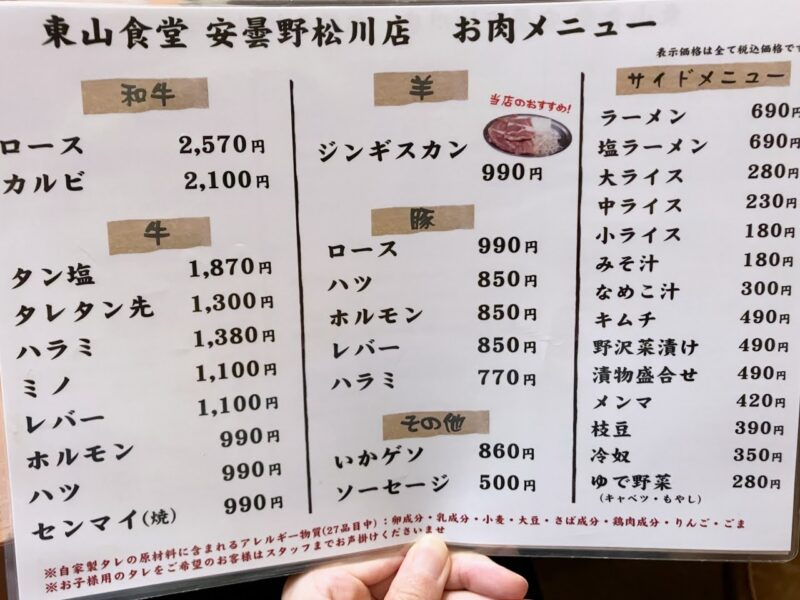 東山食堂 安曇野松川店 お肉メニュー
表示価格は全て税込価格です
和牛
ロース 2,570円
カルビ 2,100円
牛
タン塩 1,870円
タレタン先 1,300円
ハラミ 1,380円
ミノ 1,100円
レバー 1,100円
ホルモン 990円
ハツ 990円
センマイ(焼) 990円
羊
当店のおすすめ!
ジンギスカン
990円
豚
ロース 990円
ハツ 850円
ホルモン 850円
レバー 850円
ハラミ 770円
その他
いかゲソ 860円
ソーセージ 500円
サイドメニュー
ラーメン 690円
塩ラーメン 690円
大ライス 280円
中ライス 230円
小ライス 180円
みそ汁 180円
なめこ汁 300円
キムチ 490円
野沢菜漬け 490円
漬物盛合せ 490円
メンマ 420円
枝豆 390円
冷奴 350円
ゆで野菜 280円
(キャベツ・もやし)
※自家製タレの原材料に含まれるアレルギー物質(27品目中):卵成分・乳成分・小麦・大豆・さば成分・鶏肉成分・りんご・ごま
※お子様用のタレをご希望のお客様はスタッフまでお声掛けくださいませ